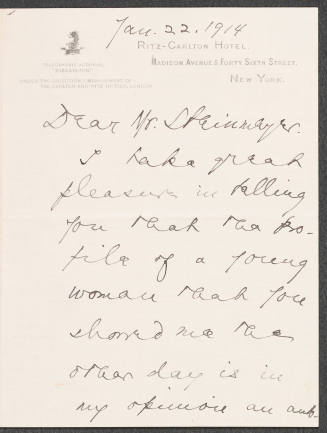 Jan. 22. 1914
Ritz-Carlton Hotel.
Madison Avenue & Forty Sixth Street,
New York.
Telegraphic Address,
Under the direction & management of
the Carlton and Ritz Hotels, London
Dear Mr. Steinmeyer.
I take great
pleasure in telling
you that the pro-
file of a young
woman that you
showed me the
other day is in
my opinion an aut-